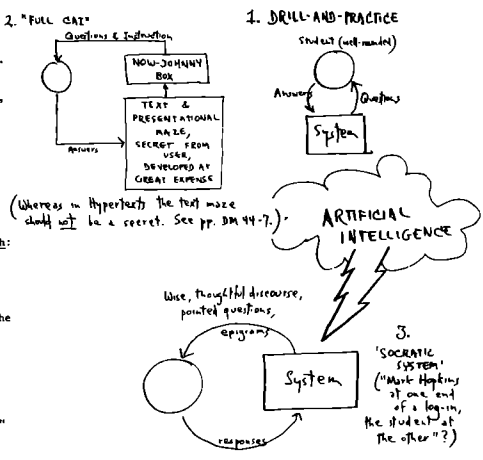 2. "FULL CAI"
Questions & Instruction
NOW-JOHNNY
BOX
TEXT &
PRESENTATIONAL
MAZE,
SECRET FROM
USER,
DEVELOPED AT
GREAT EXPENSE
Answers
(Whereas in Hypertexts the text maze
should not be a secret. See pp. DM 44-7.)
1. DRILL-AND-PRACTICE
Student (well-rounded)
Answers
Questions
System
ARTIFICIAL
INTELLIGENCE
h:
he
"
Wise, thoughtful discourse,
pointed questions,
epigrams
System
responses
3.
'SOCRATIC
SYSTEM'
("Mark Hopkins
at one end
of a log-in,
the student at
the other"?)